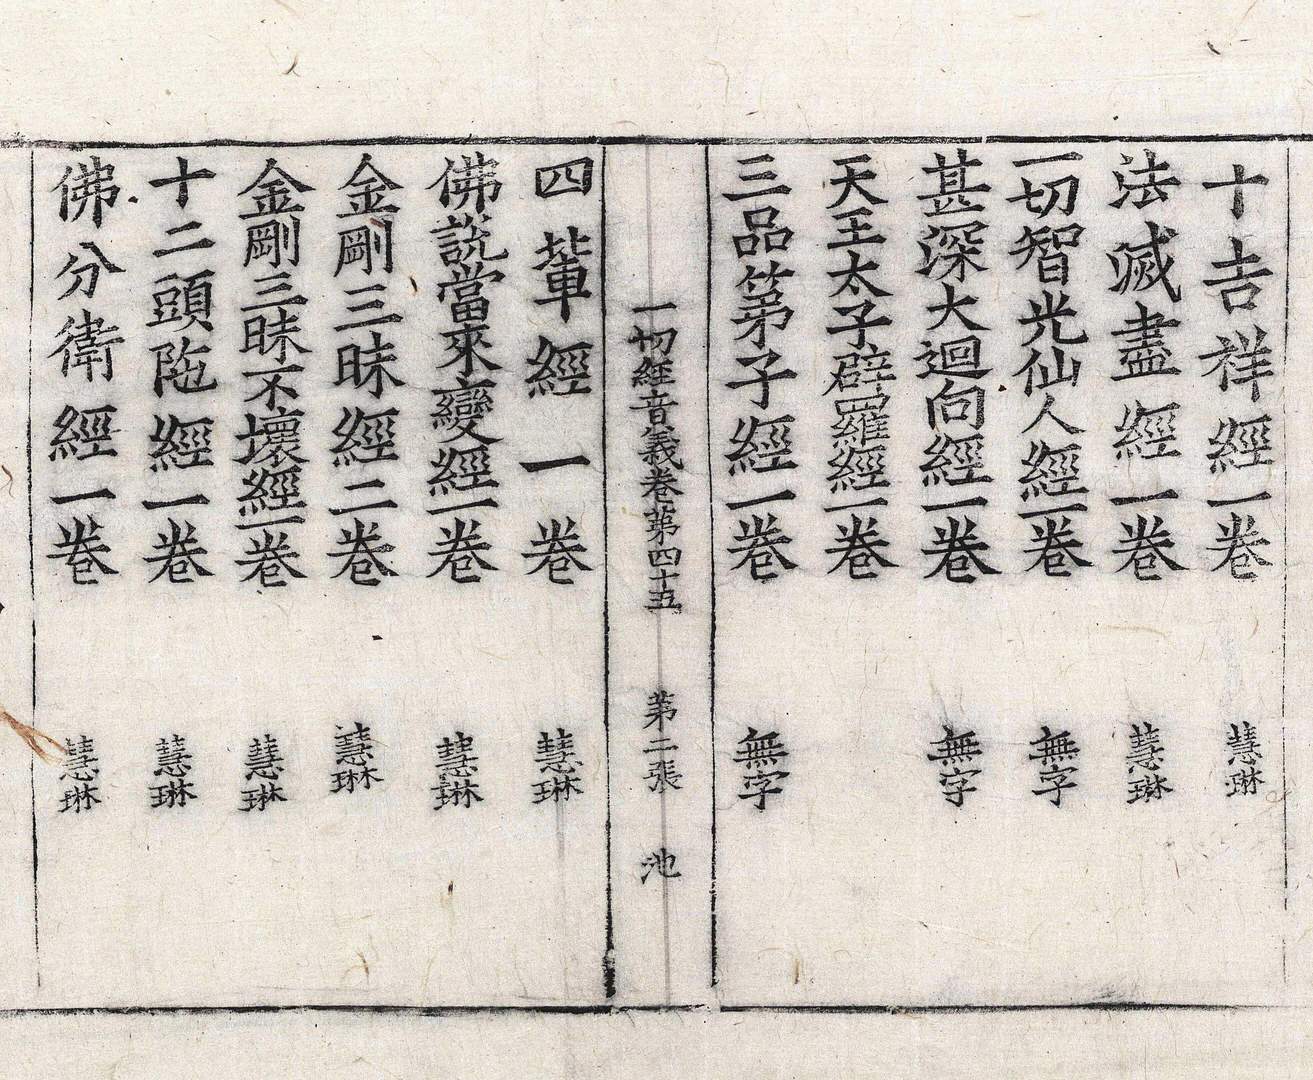 十吉祥經一卷 慧琳
法滅盡經一卷 慧琳
一切智光仙人經一卷 無字
甚深大迴向經一卷 無字
天王太子辟羅經一卷
三品弟子經一卷 無字
一切經音義卷第四十五 第二張 池
四輩經一卷 慧琳
佛說當來變經一卷 慧琳
金剛三昧經二卷 慧琳
金剛三昧不壞經一卷 慧琳
十二頭陁經一卷 慧琳
佛分衛經一卷 慧琳